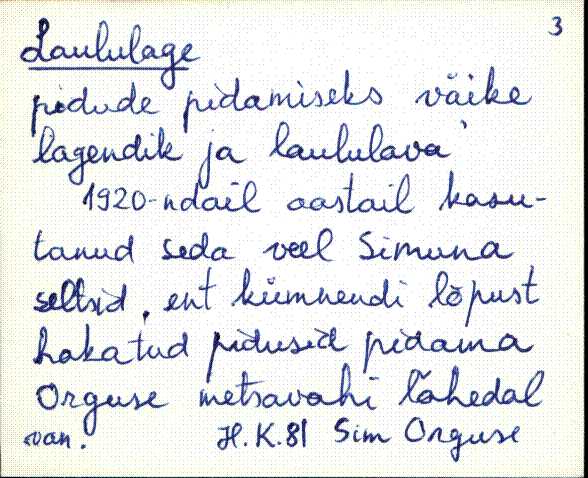 3
Laululage
pidude pidamiseks väike
lagendik ja laululava'
1920-ndail aastail kasu-
tanud seda veel Simuna
seltsid, ent kümnendi lõpust
hakatud pidusid pidama
Orguse metsavahi lähedal
van. H.K.81 Sim Orguse